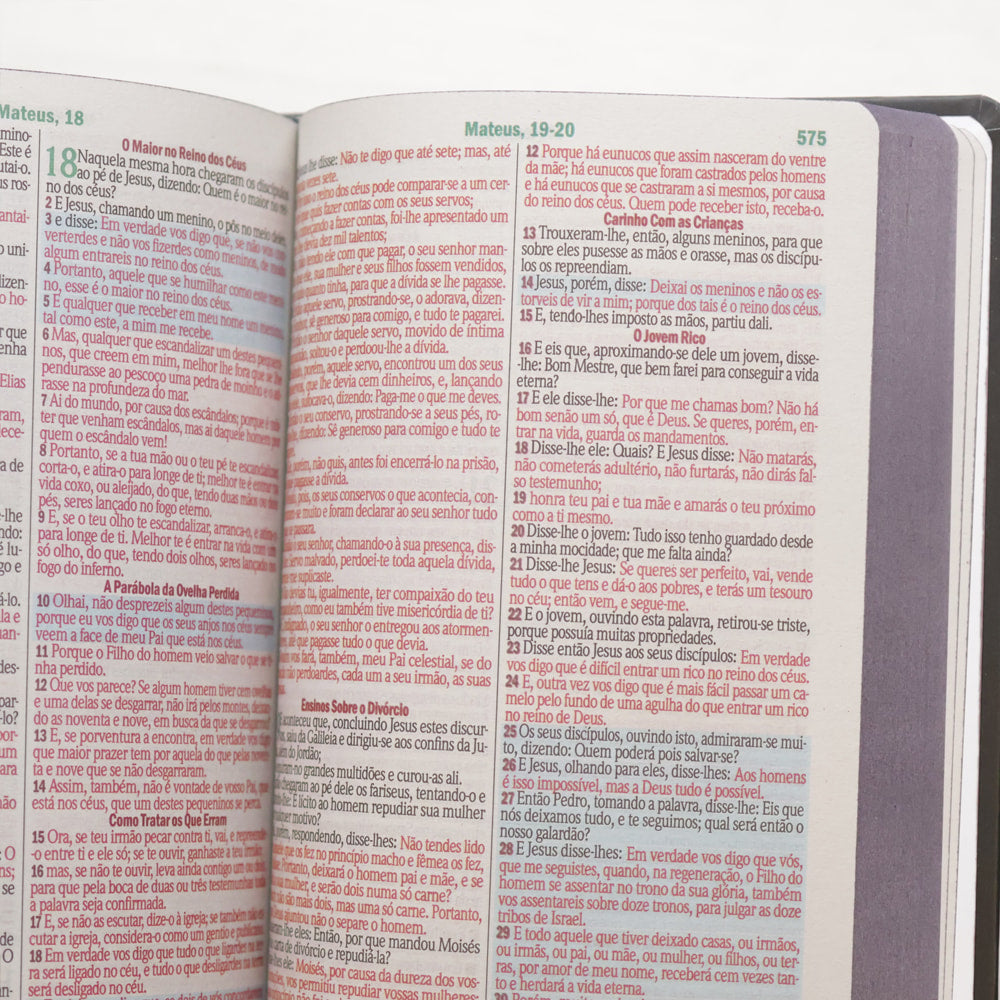 Mateus, 18
O Maior no Reino dos Céus
18 Naquela mesma hora chegaram os discípulos
ao pé de Jesus, dizendo: Quem é o maior no rei-
no dos céus?
2 E Jesus, chamando um menino, o pôs no meio deles,
3 e disse: Em verdade vos digo que, se não vos
verterdes e não vos fizerdes como meninos, de modo
algum entrareis no reino dos céus.
4 Portanto, aquele que se humilhar como este meni-
no, esse é o maior no reino dos céus.
5 E qualquer que receber em meu nome um menino,
tal como este, a mim me recebe.
6 Mas, qualquer que escandalizar um destes peque
nos, que creem em mim, melhor lhe fora que se lhe
pendurasse ao pescoço uma pedra de moinho e
rasse na profundeza do mar.
7 Ai do mundo, por causa dos escândalos; porque é
ter que venham escândalos, mas ai daquele homem por
quem o escândalo vem!
8 Portanto, se a tua mão ou o teu pé te escandalizar
corta-o, e atira-o para longe de ti; melhor te é entrar na
vida coxo, ou aleijado, do que, tendo duas mãos ou dois
pés, seres lançado no fogo eterno.
9 E, se o teu olho te escandalizar, arranca-o, e atira-o
para longe de ti. Melhor te é entrar na vida com um
só olho, do que, tendo dois olhos, seres lançado no
fogo do inferno.
A Parábola da Ovelha Perdida
10 Olhai, não desprezeis algum destes pequeninos
porque eu vos digo que os seus anjos nos céus sempre
veem a face de meu Pai que está nos céus.
11 Porque o Filho do homem veio salvar o que se ti-
nha perdido.
12 Que vos parece? Se algum homem tiver cem ovelhas
e uma delas se desgarrar, não irá pelos montes, deixan-
do as noventa e nove, em busca da que se desgarrou?
13 E, se porventura a encontra, em verdade vos digo
que maior prazer tem por aquela do que pelas noven-
ta e nove que se não desgarraram.
14 Assim, também, não é vontade de vosso Pai, que
está nos céus, que um destes pequeninos se perca.
Como Tratar os Que Erram
15 Ora, se teu irmão pecar contra ti, vai, e repreende-
-o entre ti e ele só; se te ouvir, ganhaste a teu irmão;
16 mas, se não te ouvir, leva ainda contigo um ou dois,
para que pela boca de duas ou três testemunhas toda
a palavra seja confirmada.
17 E, se não as escutar, dize-o à igreja; se também não es-
cutar a igreja, considera-o como um gentio e publicano.
18 Em verdade vos digo que tudo o que ligardes na ter-
ra será ligado no céu, e tudo o que desligardes na terra
será desligado no céu.
Mateus, 19-20
575
lhe disse: Não te digo que até sete; mas, até
vezes sete.
o reino dos céus pode comparar-se a um cer-
quis fazer contas com os seus servos;
começando a fazer contas, foi-lhe apresentado um
devia dez mil talentos;
tendo ele com que pagar, o seu senhor man-
ele, sua mulher e seus filhos fossem vendidos,
quanto tinha, para que a dívida se lhe pagasse.
aquele servo, prostrando-se, o adorava, dizen-
sê generoso para comigo, e tudo te pagarei.
senhor daquele servo, movido de íntima
soltou-o e perdoou-lhe a dívida.
porém, aquele servo, encontrou um dos seus
que lhe devia cem dinheiros, e, lançando
sufocava-o, dizendo: Paga-me o que me deves.
o seu conservo, prostrando-se a seus pés, ro-
dizendo: Sê generoso para comigo e tudo te
porém, não quis, antes foi encerrá-lo na prisão,
pagasse a dívida.
pois, os seus conservos o que acontecia, con-
muito e foram declarar ao seu senhor tudo
passara.
o seu senhor, chamando-o à sua presença, dis-
servo malvado, perdoei-te toda aquela dívida,
me suplicaste.
devias tu, igualmente, ter compaixão do teu
como eu também tive misericórdia de ti?
indignado, o seu senhor o entregou aos atormen-
até que pagasse tudo o que devia.
vos fará, também, meu Pai celestial, se do
não perdoardes, cada um a seu irmão, as suas
Ensinos Sobre o Divórcio
aconteceu que, concluindo Jesus estes discur-
saiu da Galileia e dirigiu-se aos confins da Ju-
do Jordão;
grandes multidões e curou-as ali.
chegaram ao pé dele os fariseus, tentando-o e
É lícito ao homem repudiar sua mulher
qualquer motivo?
porém, respondendo, disse-lhes: Não tendes lido
que os fez no princípio macho e fêmea os fez,
Portanto, deixará o homem pai e mãe, e se
mulher, e serão dois numa só carne?
não são mais dois, mas uma só carne. Portanto,
Deus ajuntou não o separe o homem.
ele: Então, por que mandou Moisés
carta de divórcio e repudiá-la?
ele: Moisés, por causa da dureza dos vos-
vos permitiu repudiar vossas mulheres;
12 Porque há eunucos que assim nasceram do ventre
da mãe; há eunucos que foram castrados pelos homens
e há eunucos que se castraram a si mesmos, por causa
do reino dos céus. Quem pode receber isto, receba-o.
Carinho Com as Crianças
13 Trouxeram-lhe, então, alguns meninos, para que
sobre eles pusesse as mãos e orasse, mas os discípu-
los os repreendiam.
14 Jesus, porém, disse: Deixai os meninos e não os es-
torveis de vir a mim; porque dos tais é o reino dos céus.
15 E, tendo-lhes imposto as mãos, partiu dali.
O Jovem Rico
16 E eis que, aproximando-se dele um jovem, disse-
-lhe: Bom Mestre, que bem farei para conseguir a vida
eterna?
17 E ele disse-lhe: Por que me chamas bom? Não há
bom senão um só, que é Deus. Se queres, porém, en-
trar na vida, guarda os mandamentos.
18 Disse-lhe ele: Quais? E Jesus disse: Não matarás,
não cometerás adultério, não furtarás, não dirás fal-
so testemunho;
19 honra teu pai e tua mãe e amarás o teu próximo
como a ti mesmo.
20 Disse-lhe o jovem: Tudo isso tenho guardado desde
a minha mocidade; que me falta ainda?
21 Disse-lhe Jesus: Se queres ser perfeito, vai, vende
tudo o que tens e dá-o aos pobres, e terás um tesouro
no céu; então vem, e segue-me.
22 E o jovem, ouvindo esta palavra, retirou-se triste,
porque possuía muitas propriedades.
23 Disse então Jesus aos seus discípulos: Em verdade
vos digo que é difícil entrar um rico no reino dos céus.
24 E, outra vez vos digo que é mais fácil passar um ca-
melo pelo fundo de uma agulha do que entrar um rico
no reino de Deus.
25 Os seus discípulos, ouvindo isto, admiraram-se mui-
to, dizendo: Quem poderá pois salvar-se?
26 E Jesus, olhando para eles, disse-lhes: Aos homens
é isso impossível, mas a Deus tudo é possível.
27 Então Pedro, tomando a palavra, disse-lhe: Eis que
nós deixamos tudo, e te seguimos; qual será então o
nosso galardão?
28 E Jesus disse-lhes: Em verdade vos digo que vós,
que me seguistes, quando, na regeneração, o Filho do
homem se assentar no trono da sua glória, também
vos assentareis sobre doze tronos, para julgar as doze
tribos de Israel.
29 E todo aquele que tiver deixado casas, ou irmãos,
ou irmãs, ou pai, ou mãe, ou mulher, ou filhos, ou ter-
ras, por amor de meu nome, receberá cem vezes tan-
to e herdará a vida eterna.